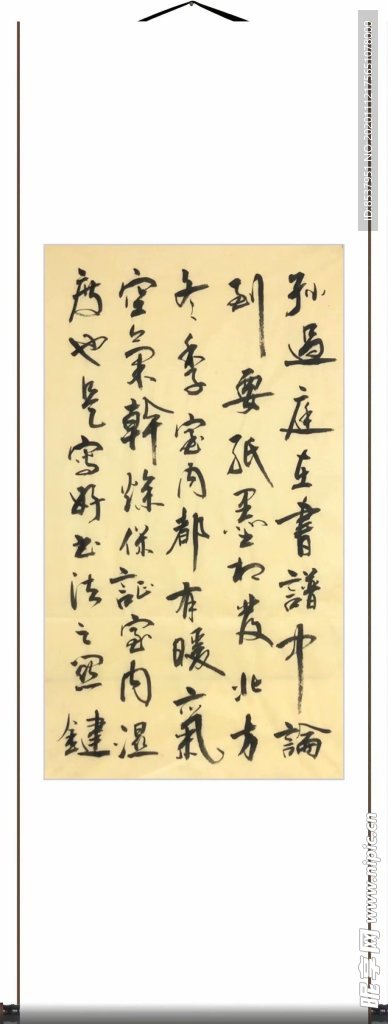 孙過庭在書譜中論
到要紙墨相發北方
冬季室内都有暖氣
空氣幹燥保証室内濕
度也是寫好书法之關
鍵
ID:8537951 NO:20201112175051078000
昵享网 www.nipic.cn